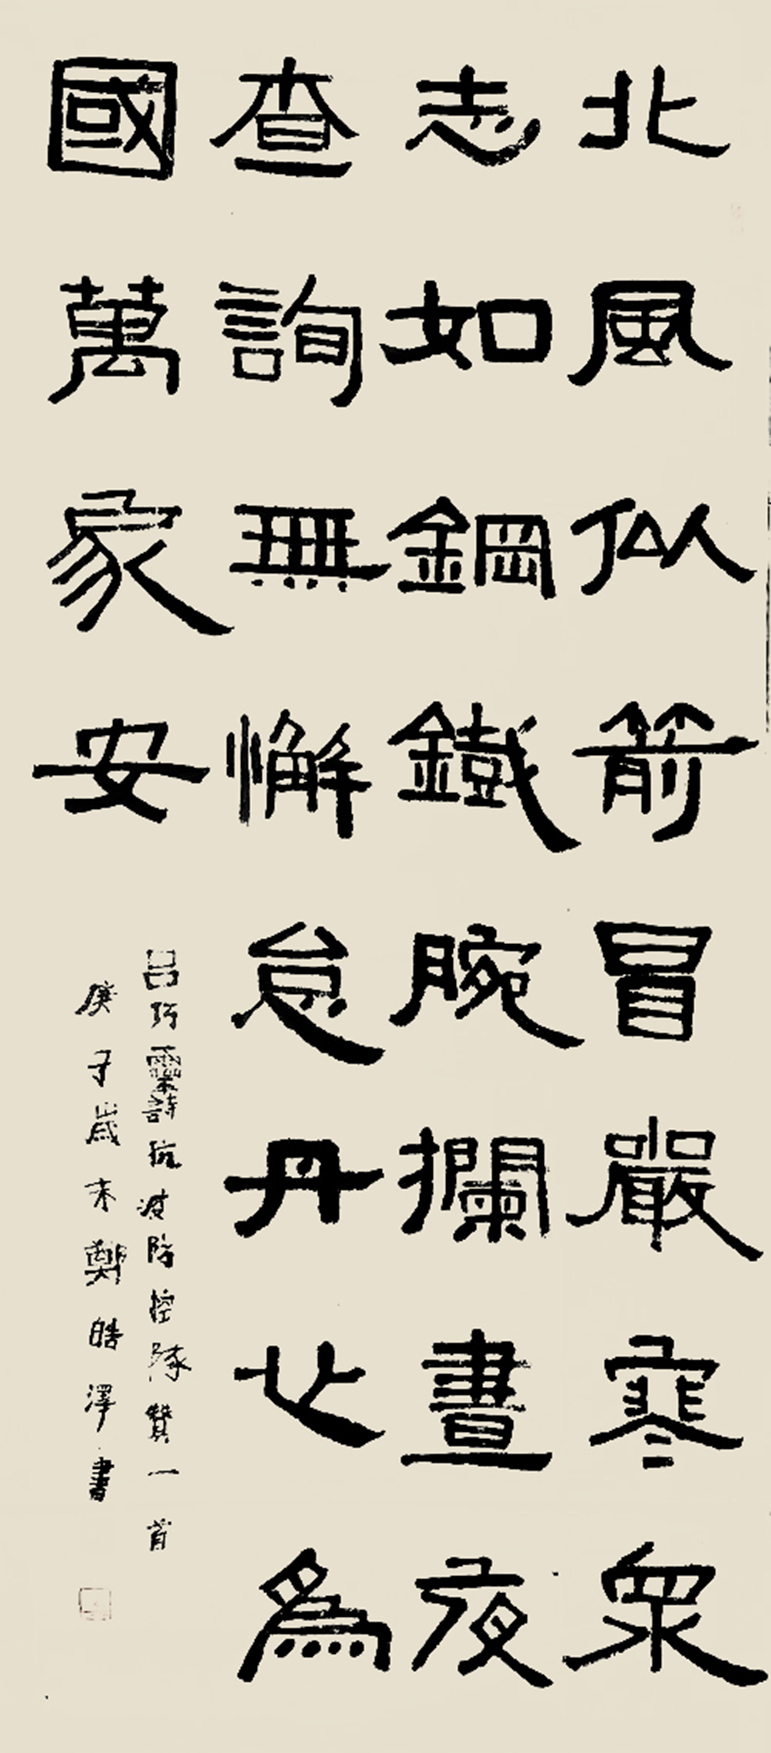 北風似箭冒嚴寒眾
志如鋼鐵腕攔晝夜
查詢無懈怠丹心為
國萬家安
呂巧靈詩抗疫防控隊贊一首
庚子歲末鄭皓澤書